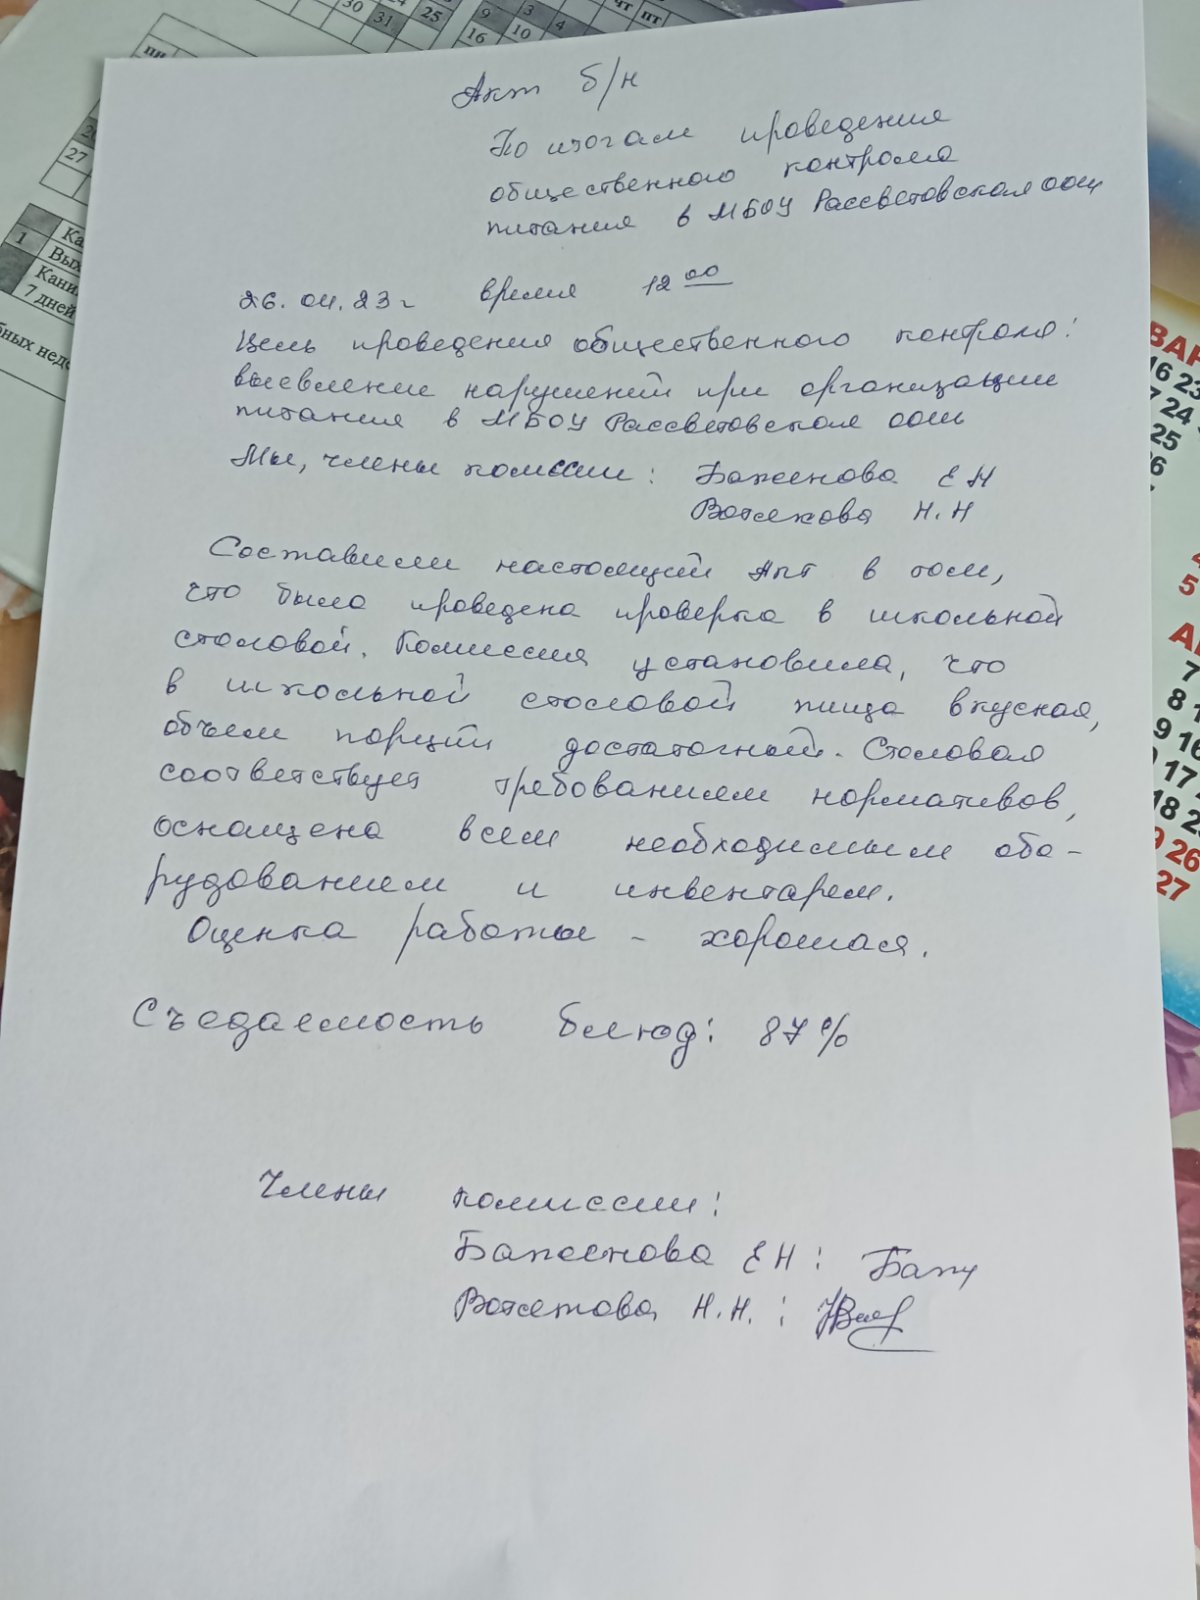 Акт б/н
По итогам проведения
общественного контроля
питания в МБОУ Рассветовская оош
26.04.23 г время 12 00
Цель проведения общественного контроля:
выевление нарушений при организации
питания в МБОУ Рассветовская оош
Мы, члены комссии: Баженова Е Н
Вотекова Н.Н
Составили настоящий Акт в том,
что была проведена проверка в школьной
столовой. Комиссия установила, что
в школьной столовой пища вкусная,
объем порции достаточный. Столовая
соответствует требованием нормативов,
оснащена всем необходимым обо-
рудованием и инвентарем.
Оценка работы - хорошая.
Съедаемость блюд: 87%
Члены комиссии:
Баженова ЕН: Баж
Н.Н.:
30 31 25
9 3 4
16 10
чт пт
пн
27
1
Вых
Кани
7 дней
16 23
7 24
25
5
7
8 1
9 16
17
18 2
26
27